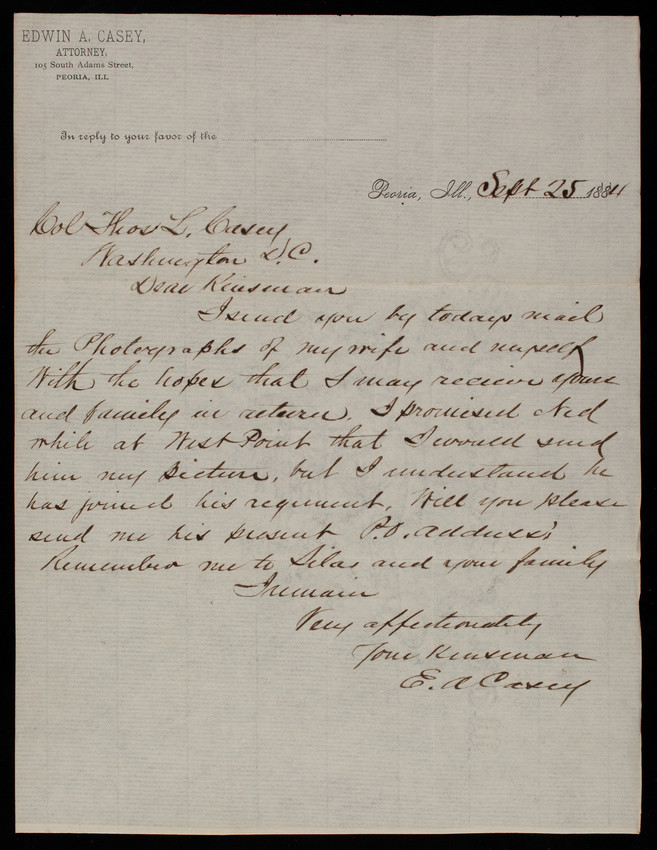 EDWIN A. CASEY,
ATTORNEY,
105 South Adams Street,
PEORIA, ILL
In reply to your favor of the
Peoria, Ill., Sept 25 1884
Col Thos L. Casey
Washington D.C.
Dear Kinsman
I send you by todays mail
the Photographs of my wife and myself
With the hopes that I may recieve yours
and family in return. I promised Ned
while at West Point that I would send
him my picture, but I understand he
has joined his regiment. Will you please
send me his present P.O. address.
Remember me to Silas and your family
I remain
Very affectionately
Your Kinsman
E. A Casey